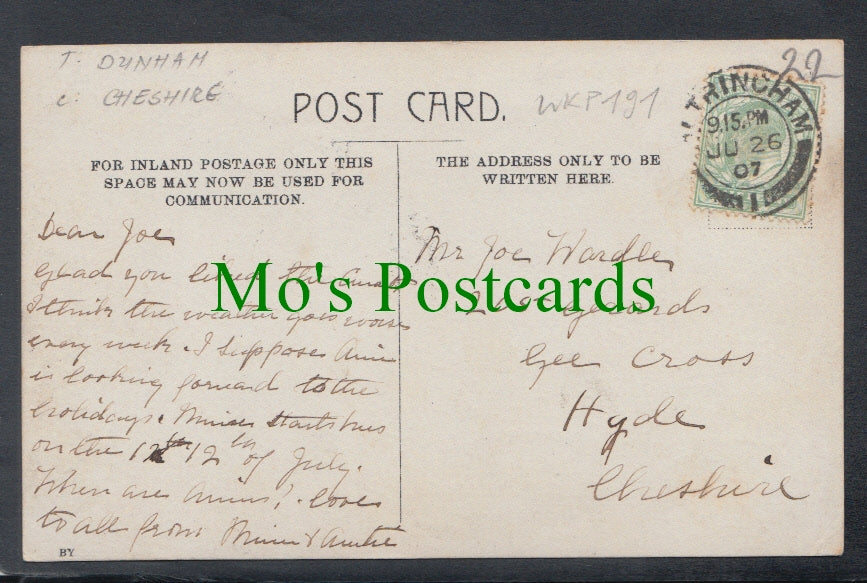 T. DUNHAM
c. CHESHIRE
POST CARD.
WKP191
22
FOR INLAND POSTAGE ONLY THIS
SPACE MAY NOW BE USED FOR
COMMUNICATION.
THE ADDRESS ONLY TO BE
WRITTEN HERE.
ALTRINCHAM
9.15.PM
JU 26
07
1
Dear Joe
Glad you liked the
I think the weather gets worse
every week. I suppose
is looking forward to the
holidays. starts hers
on the 12th of July.
When are ? love
to all from & Auntie
Mr Joe Wardle
Gee Cross
Hyde
Cheshire
BY
Mo's Postcards